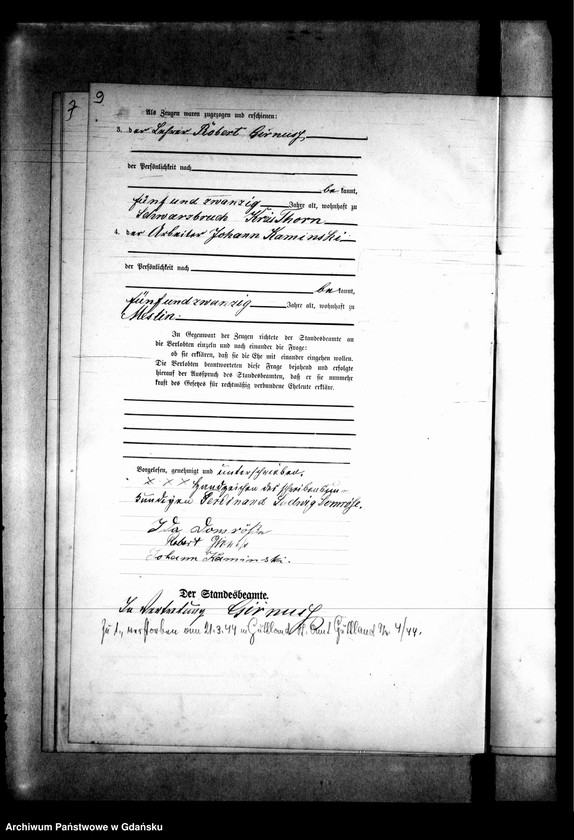 7
9
Als Zeugen waren zugezogen und erschienen:
3. der Lehrer Robert Girnus,
der Persönlichkeit nach
bekannt,
fünf und zwanzig Jahre alt, wohnhaft zu
Schwarzbruch Kreis Thorn
4. der Arbeiter Johann Kaminski
der Persönlichkeit nach
bekannt,
fünfundzwanzig Jahre alt, wohnhaft zu
Mestin.
In Gegenwart der Zeugen richtete der Standesbeamte an
die Verlobten einzeln und nach einander die Frage:
ob sie erklären, daß sie die Ehe mit einander eingehen wollen.
Die Verlobten beantworteten diese Frage bejahend und erfolgte
hierauf der Ausspruch des Standesbeamten, daß er sie nunmehr
kraft des Gesetzes für rechtmäßig verbundene Eheleute erkläre.
Vorgelesen, genehmigt und unterschrieben.
× × × Handzeichen des schreibensun-
kundigen Ferdinand Ludwig Domröse.
Ida Domröße
Robert
Johann Kaminski.
Der Standesbeamte.
In Vertretung Girnus
Zu 1, verstorben am 21.3.44 in Güttland St. Amt Güttland Nr 4/44.
Archiwum Państwowe w Gdańsku